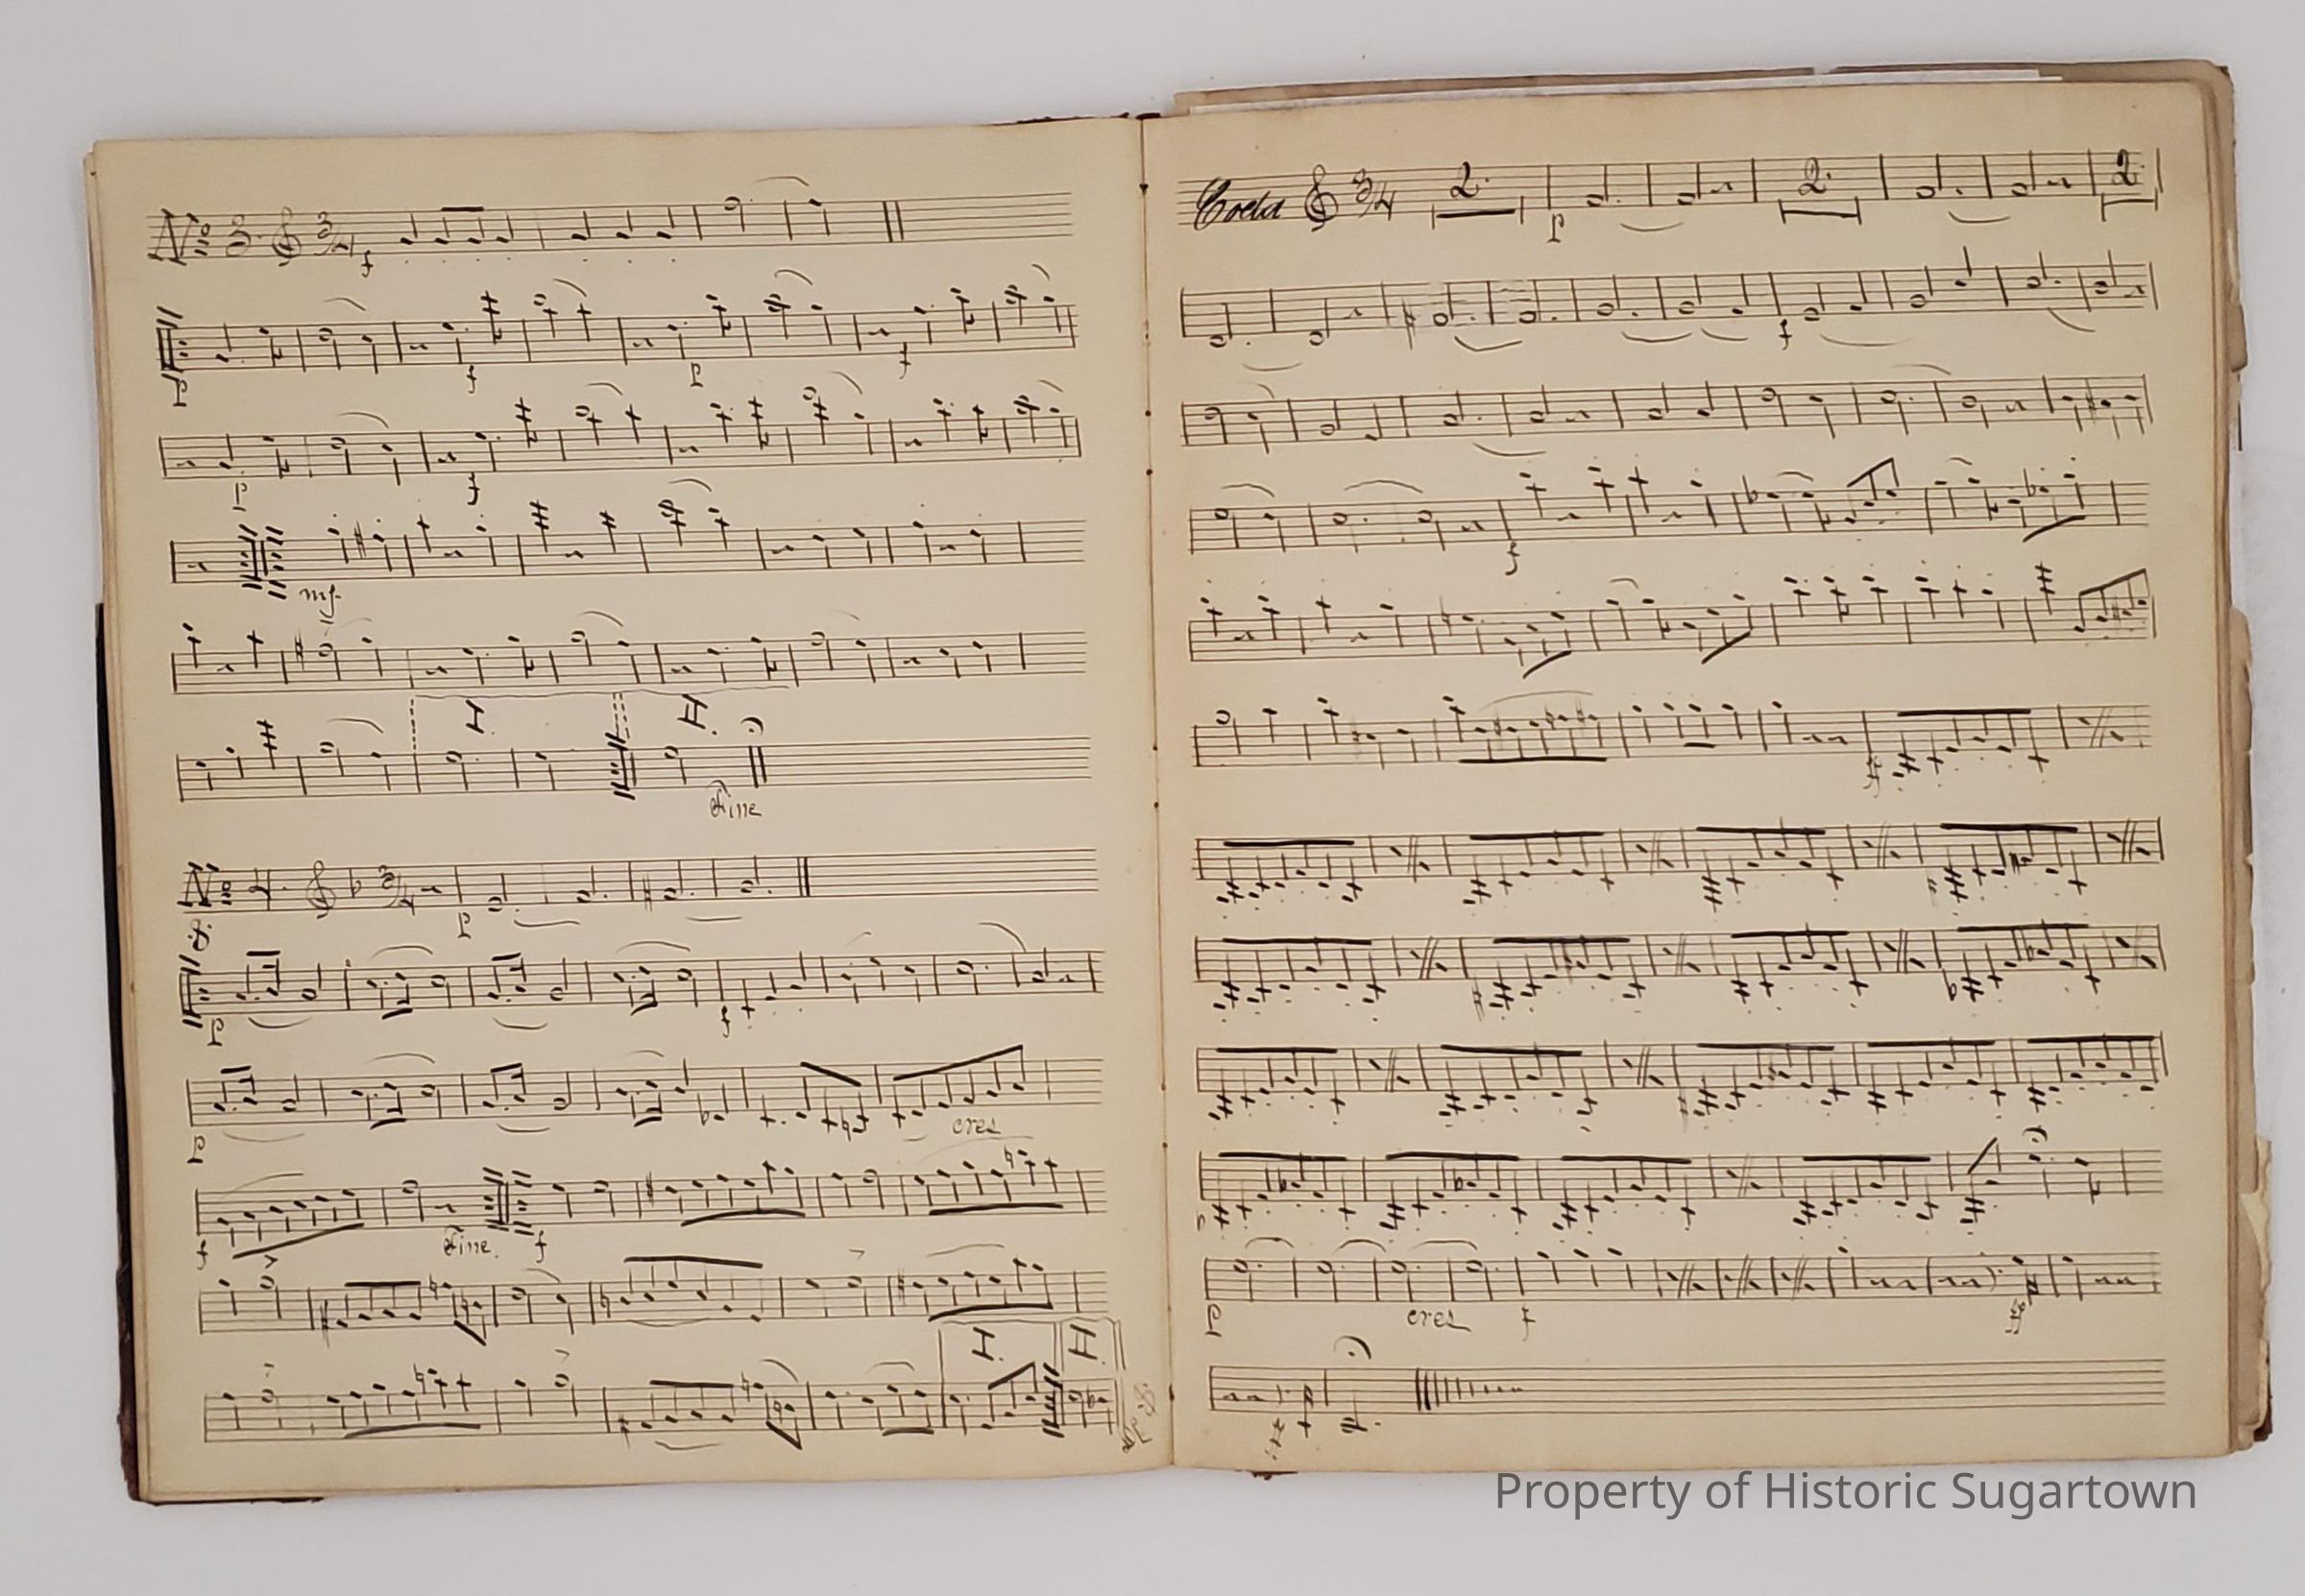 No 3. 3/4
f
p f p f
p f
mf
I. II.
Fine
No 4. 3/4
p
p f
p cres
f Fine. f
I. II.
Coda 3/4 2. 2. 2.
p
f
f
ff
p cres f ff
Property of Historic Sugartown